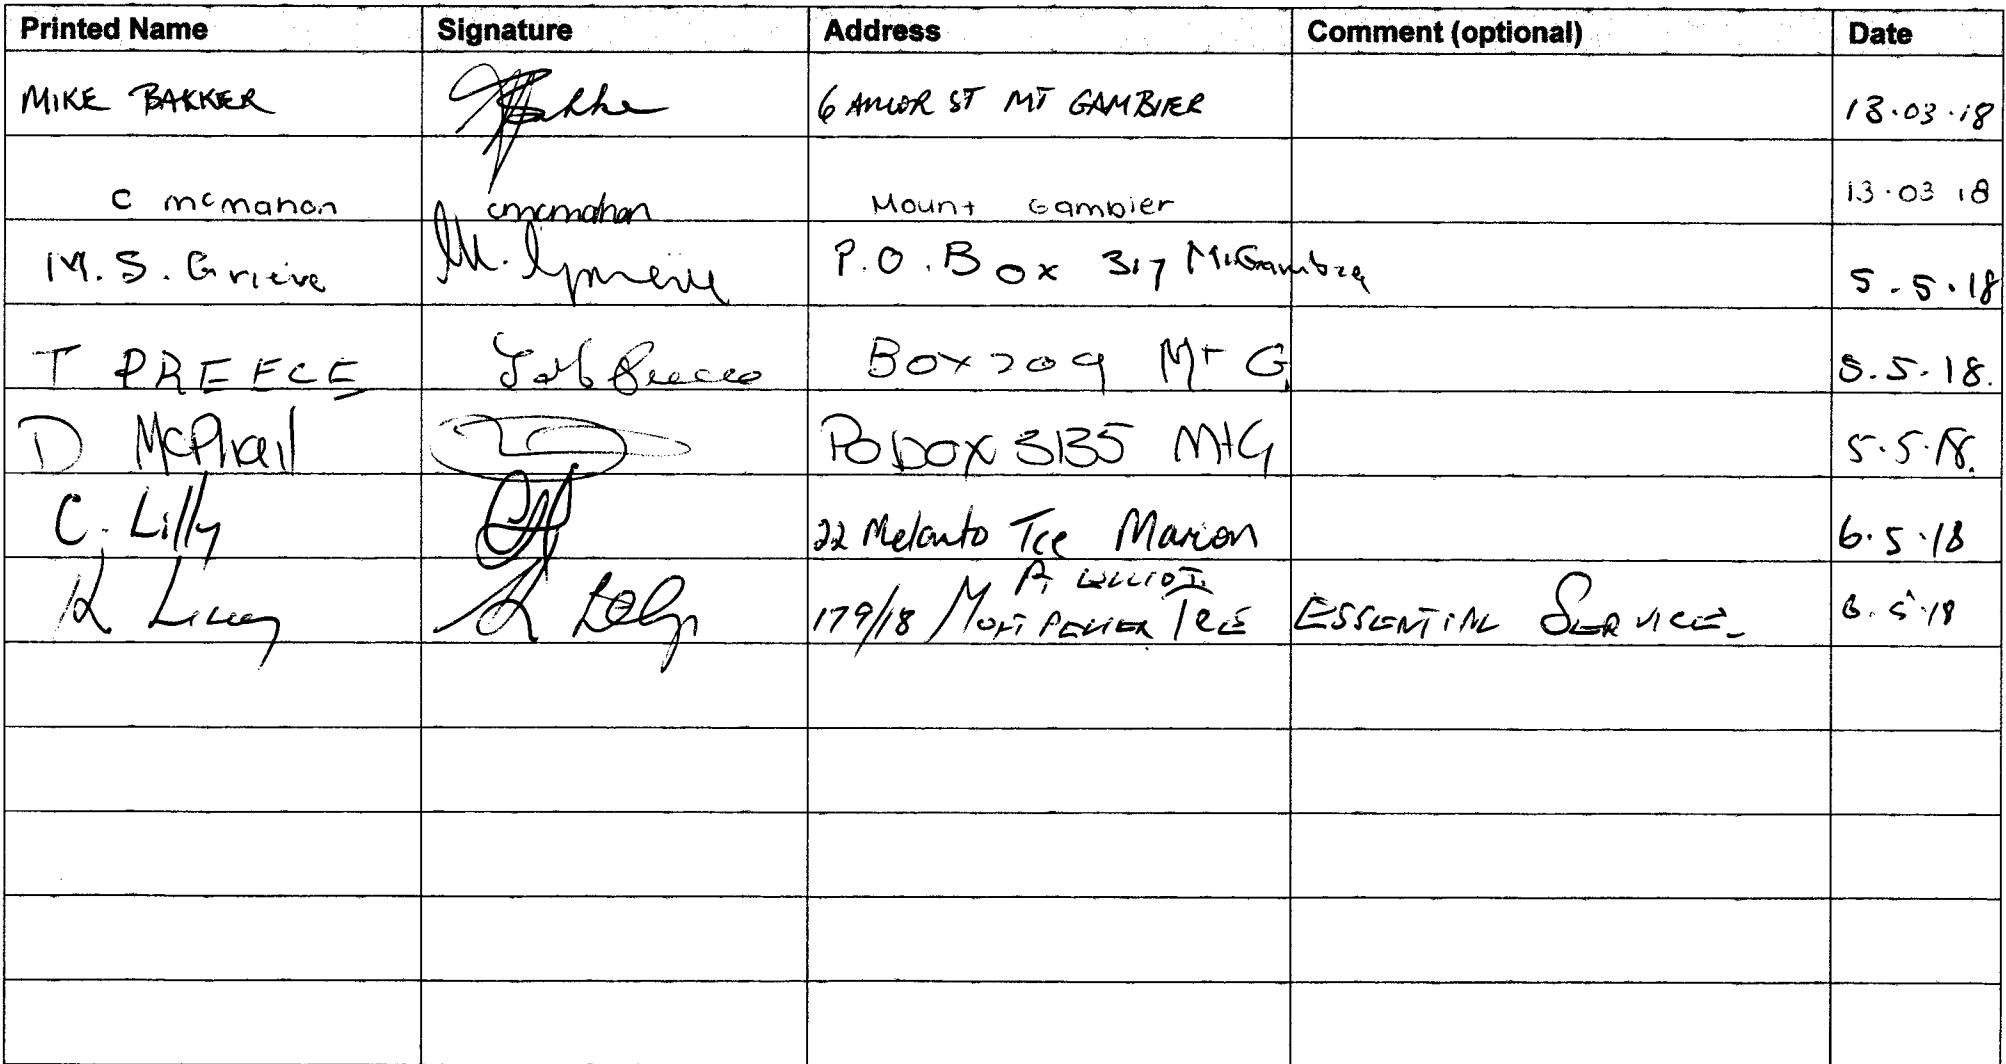 Printed Name Signature Address Comment (optional) Date
MIKE BAKKER 6 ST MT GAMBIER 13.03.18
C mcmahon cmcmahon Mount Gambier 13.03 18
M.S. Grieve M. P.O. Box 317 Mt Gambier 5.5.18
T PREECE Preece Box 209 Mt G 5.5.18.
D McPhail PO Box 3135 Mt G 5.5.18.
C. Lilly 22 Tce Marion 6.5.18
P, ELLIOT
K 179/18 Tce ESSENTIAL SERVICE 6.5.18